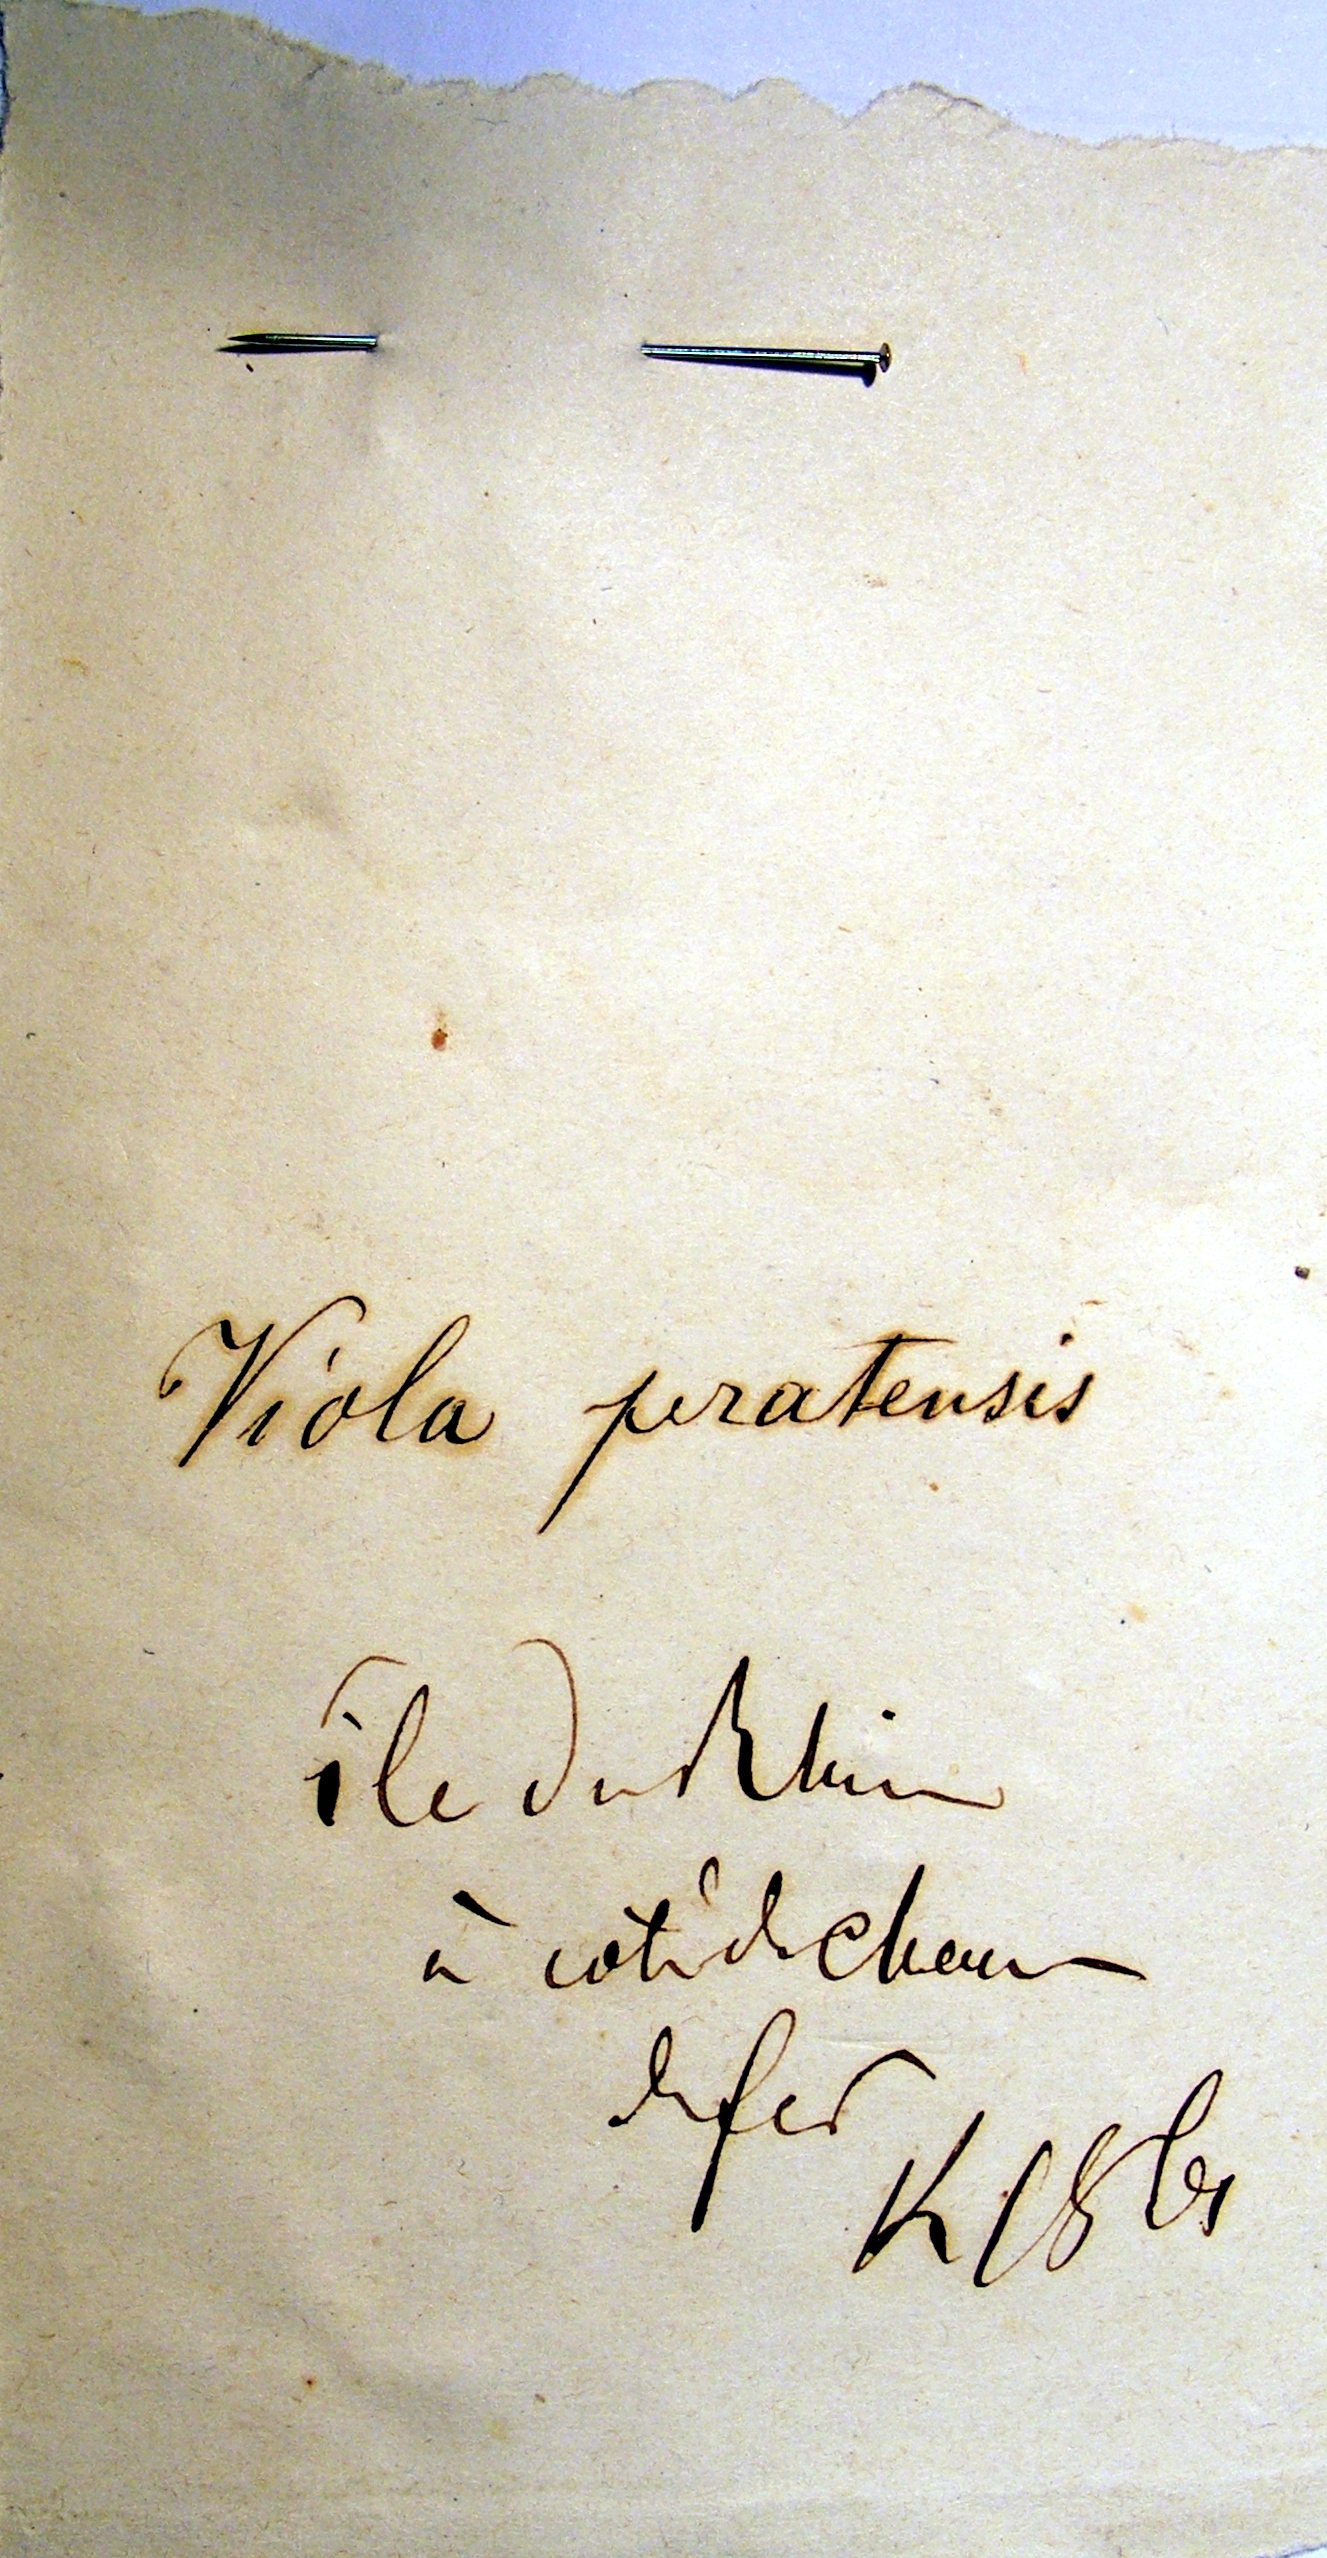 Viola pratensis
île du Rhin
à côté de chemin
de fer